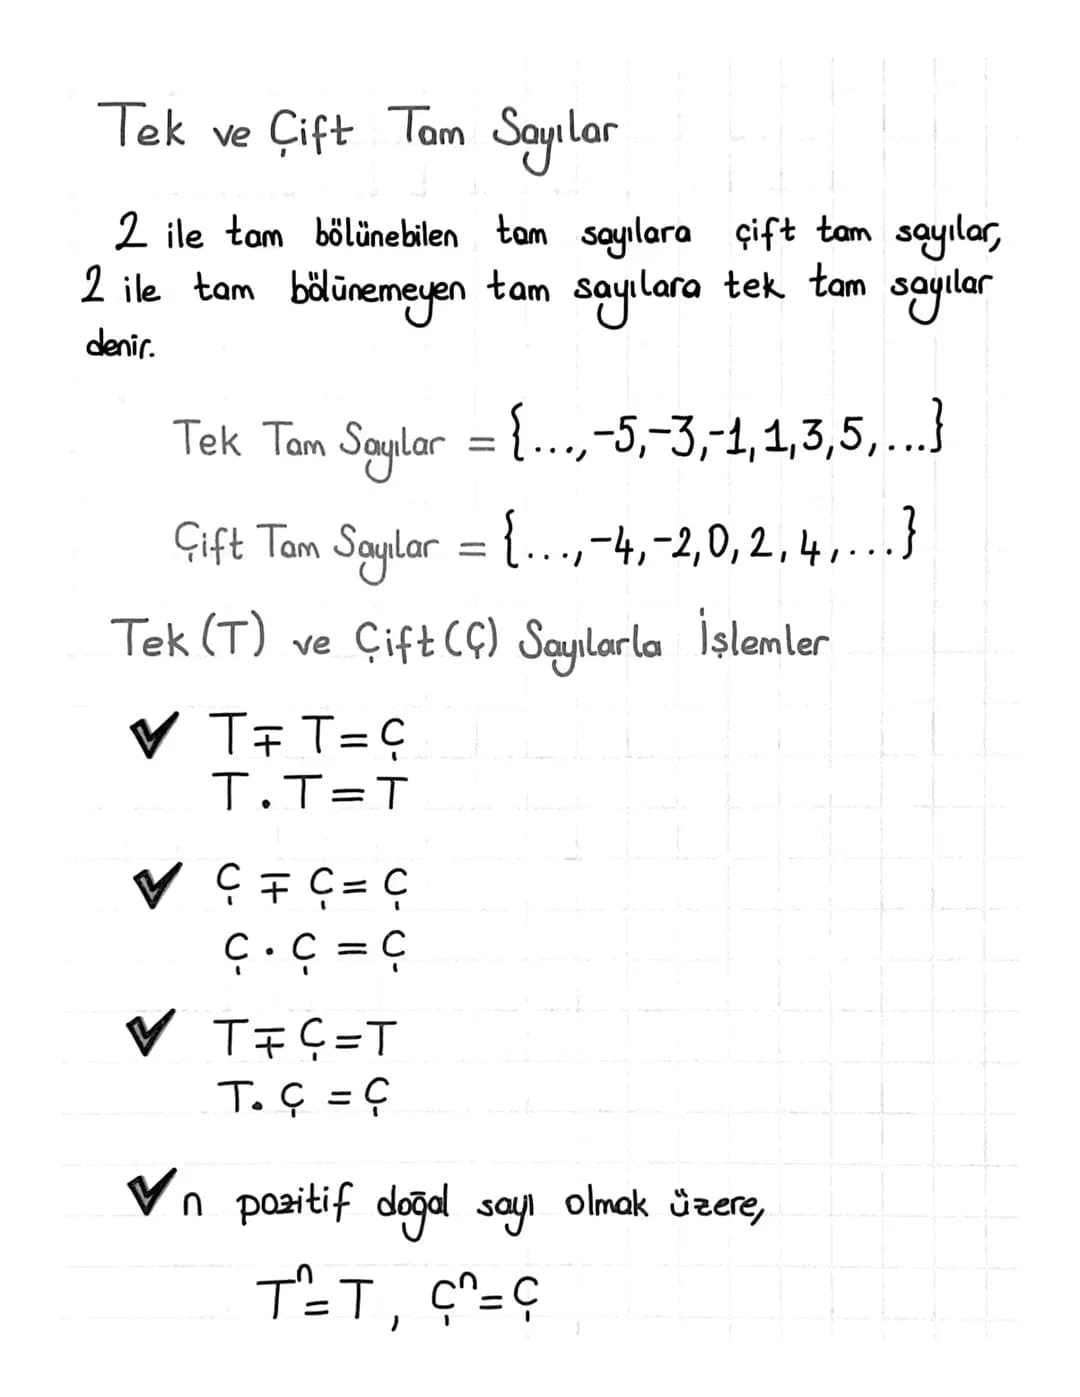 Tek ve Çift Tam Sayılar
2 ile tam bölünebilen tam sayılara çift tam sayılar,
2 ile tam bölünemeyen tam sayılara tek tam sayılar
denir.
Tek Tam Sayılar = {...,-5,-3,-1,1,3,5,...}
Çift Tam Sayılar = {...,-4,-2,0,2,4,...}
Tek (T) ve Çift (Ç) Sayılarla İşlemler
✓ T∓T=Ç
T.T=T
✓ Ç∓Ç=Ç
Ç.Ç=Ç
✓ T∓Ç=T
T.Ç=Ç
✓ n pozitif doğal sayı olmak üzere,
Tⁿ=T, Çⁿ=Ç